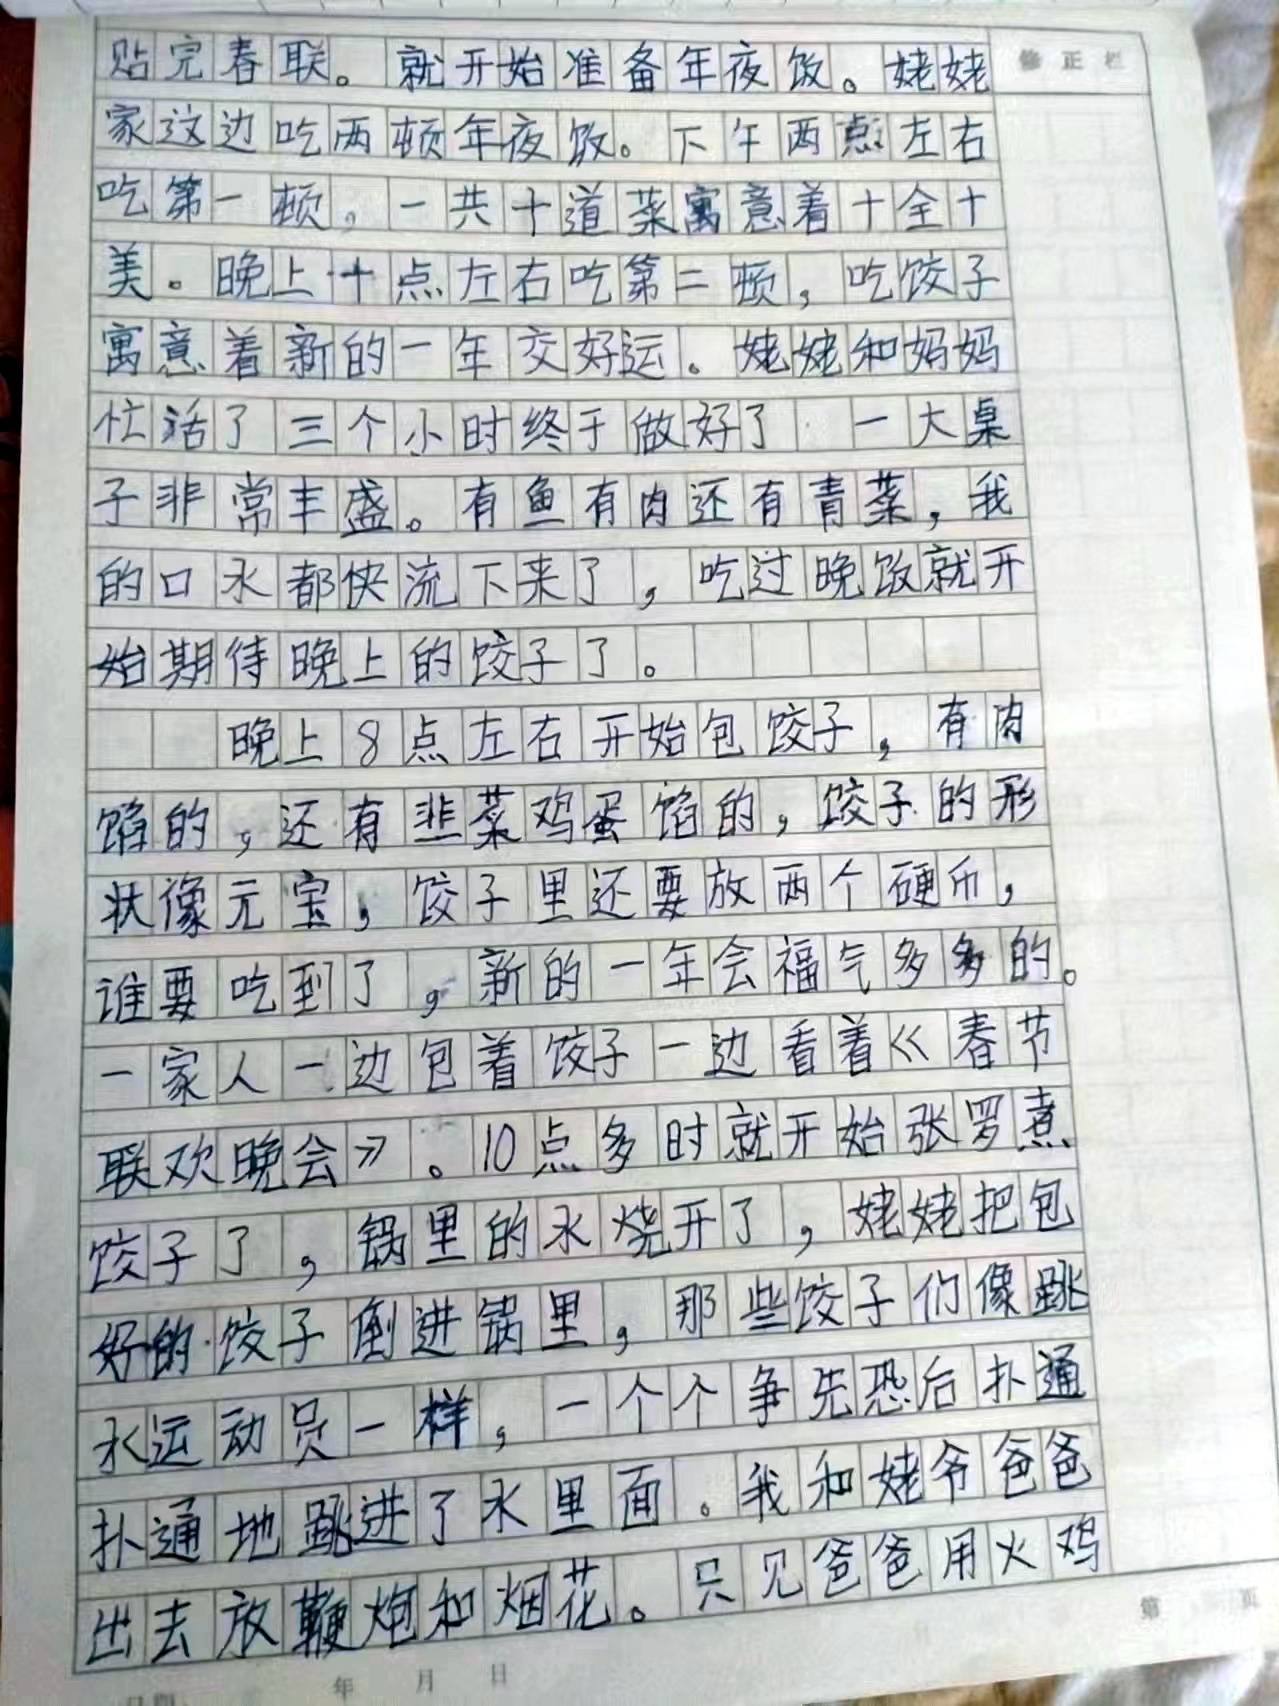 贴完春联。就开始准备年夜饭。姥姥
修正栏
家这边吃两顿年夜饭。下午两点左右
吃第一顿，一共十道菜寓意着十全十
美。晚上十点左右吃第二顿，吃饺子
寓意着新的一年交好运。姥姥和妈妈
忙活了三个小时终于做好了 一大桌
子非常丰盛。有鱼有肉还有青菜，我
的口水都快流下来了，吃过晚饭就开
始期待晚上的饺子了。
晚上8点左右开始包饺子，有肉
馅的，还有韭菜鸡蛋馅的，饺子的形
状像元宝，饺子里还要放两个硬币，
谁要吃到了，新的一年会福气多多的。
一家人一边包着饺子一边看着《春节
联欢晚会》。10点多时就开始张罗煮
饺子了，锅里的水烧开了，姥姥把包
好的饺子倒进锅里，那些饺子们像跳
水运动员一样，一个个争先恐后扑通
扑通地跳进了水里面。我和姥爷爸爸
出去放鞭炮和烟花。只见爸爸用火鸡
第 页
年 月 日